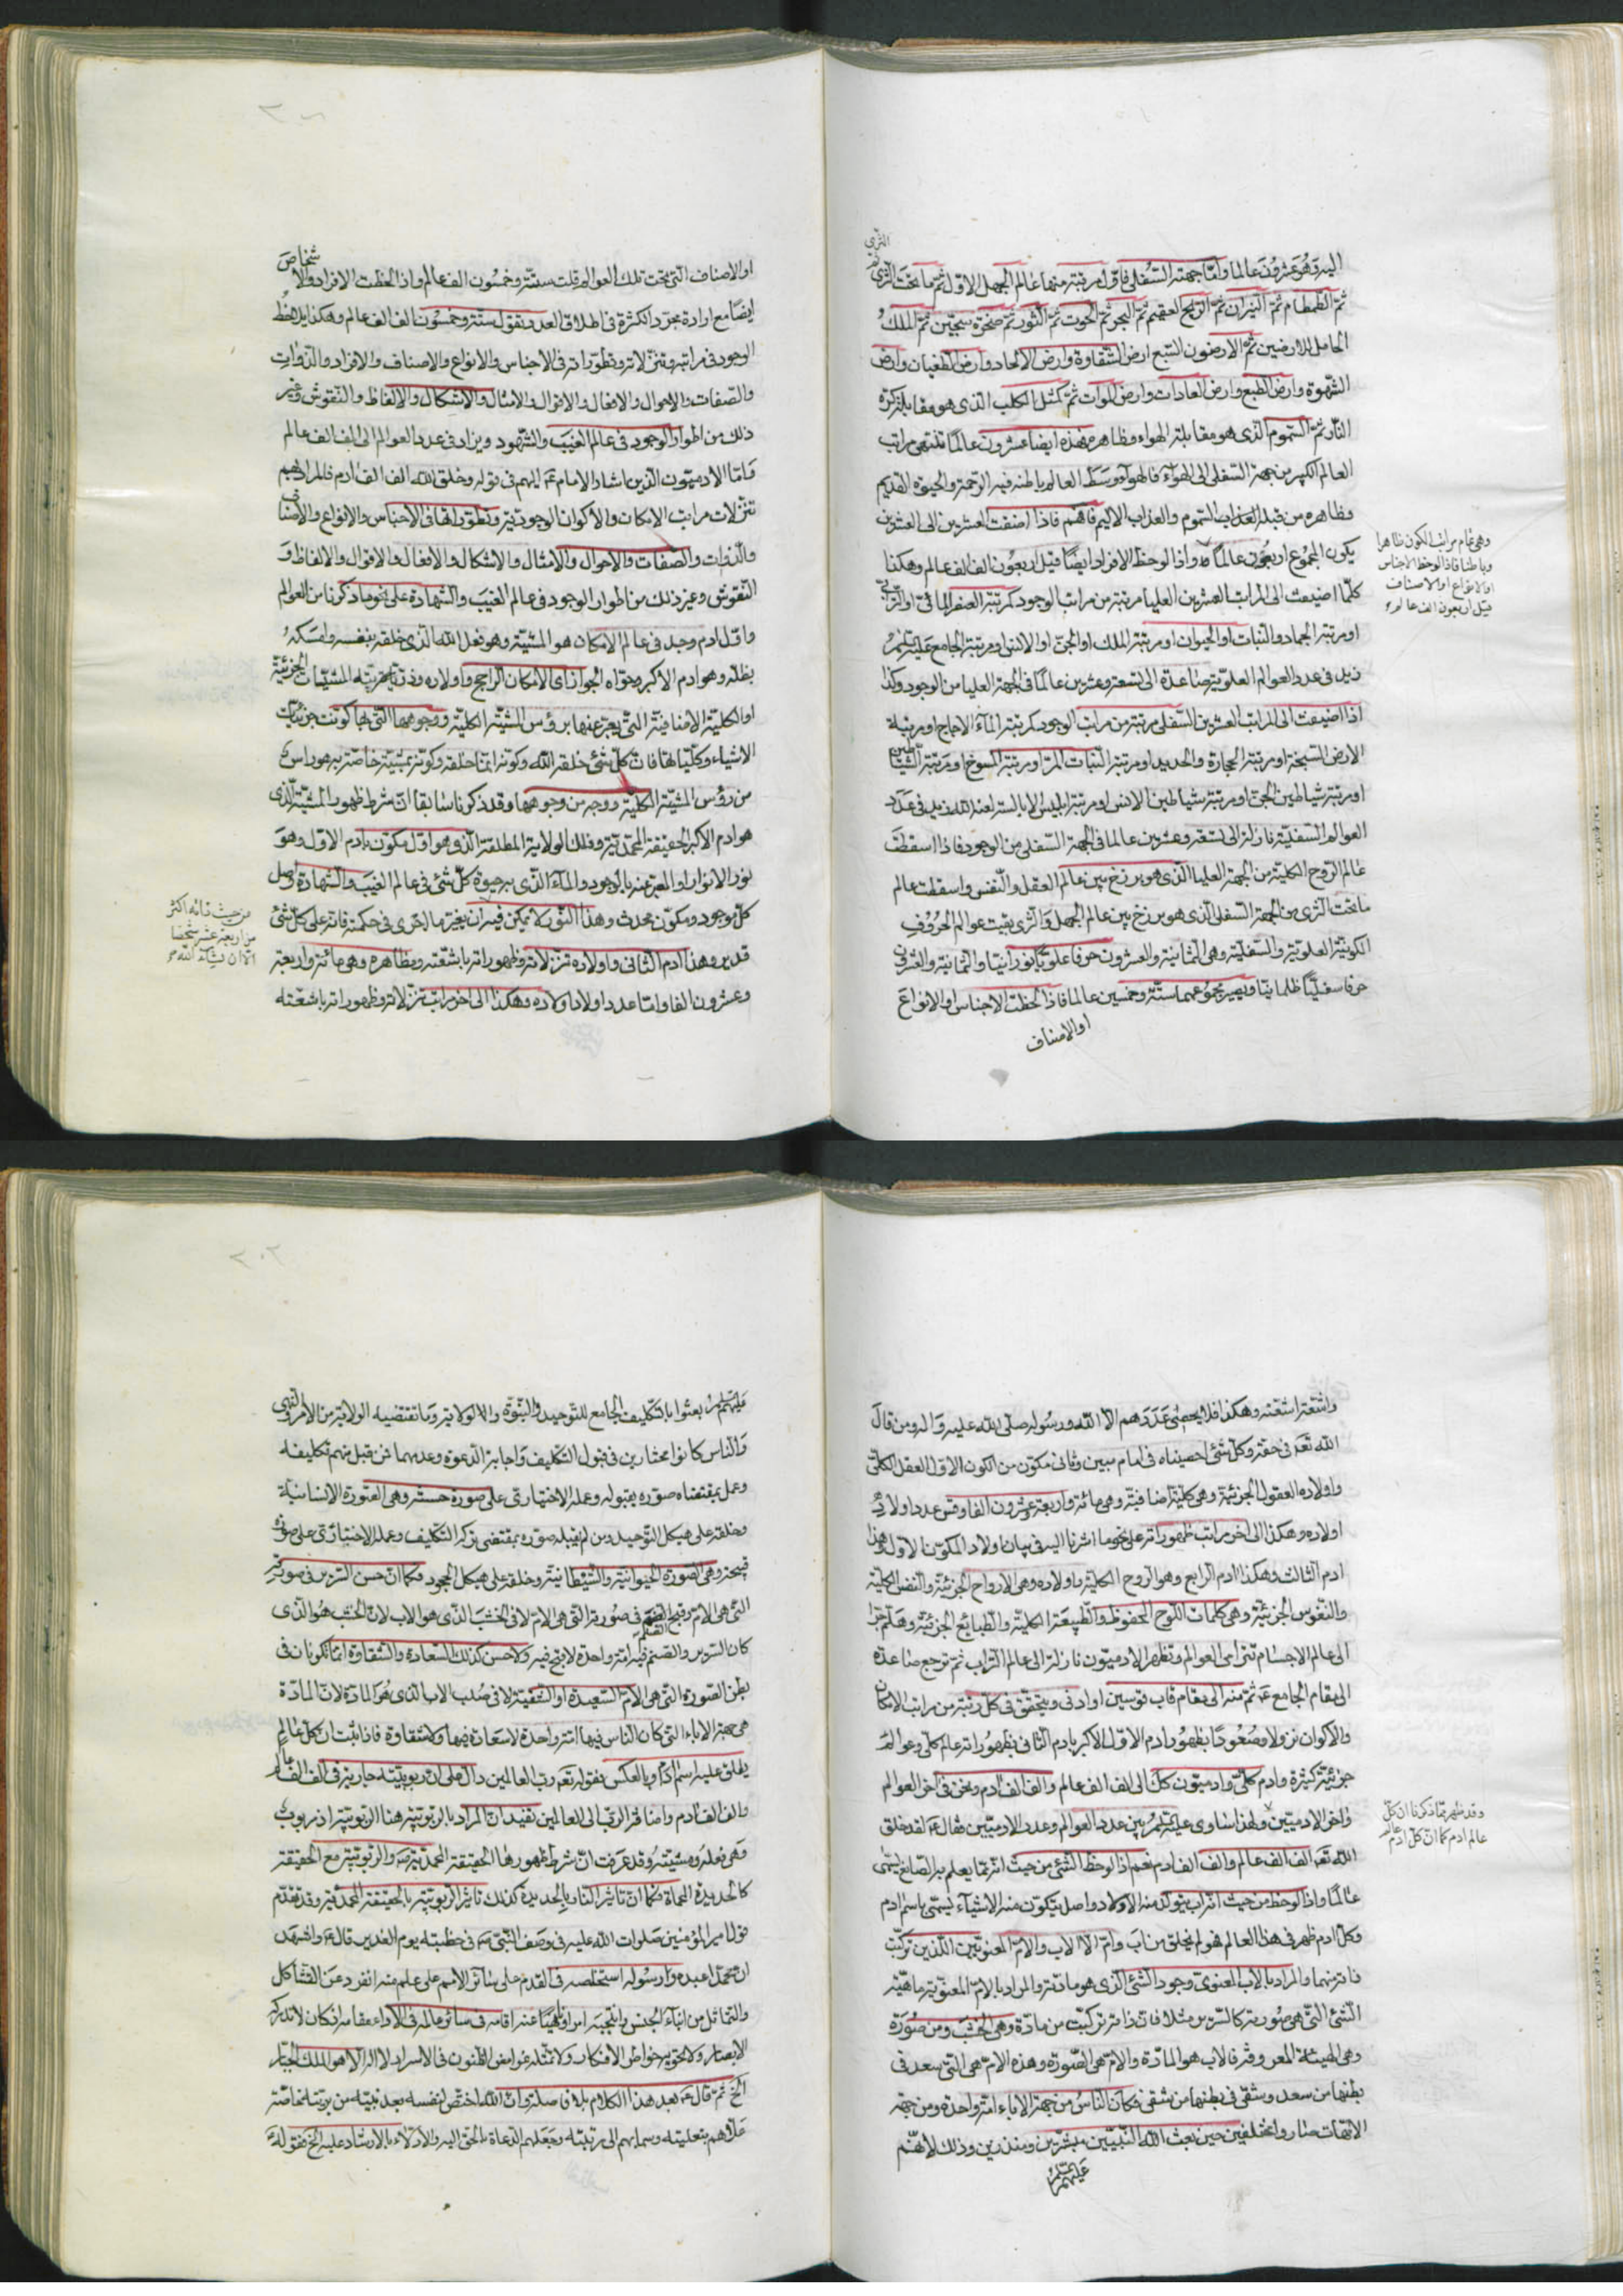 اليه وهو عشرون عالما واما جهة السفلى فاول مرتبة منها عالم الجهل الاول ثم ما تحت الثرى ثم الثرى
ثم الطمطام ثم النيران ثم الريح العقيم ثم البحر ثم الحوت ثم الثور ثم صخرة سجين ثم الملك
الحامل للارضين ثم الارضون السبع ارض الشقاوة وارض الالحاد وارض الطغيان وارض
الشهوة وارض الطبع وارض العادات وارض الموات ثم كمثل الكلب الذى هو مقابلة كرة
النار ثم السموم الذى هو مقابلة الهواء فهذه ايضا عشرون عالما تنتهى مراتب
العالم الكبير من جهة السفلى الى الهواء فالهواء وسط العالم باطنه فيه الرحمة والحيوة القديم
وظاهره من قبله العذاب السموم والعذاب الاليم فافهم فاذا اضفت العشرين الى العشرين
يكون المجموع اربعون عالما واذا لوحظ الافراد ايضا قيل اربعون الف الف عالم وهكذا
وهى تمام مراتب الكون ظاهرا
وباطنا فاذا لوحظ الاجناس
او الانواع او الاصناف
قيل اربعون الف عالم
كلما اضيفت الى المراتب العشرين العليا مرتبة من مراتب الوجود كمرتبة العنصر المائى او الترابى
او مرتبة الجماد والنبات او الحيوان او مرتبة الملك او الجن او الانس او مرتبة الجامع عليه السلام
زيد فى عدد العوالم العلوية صاعدة الى تسعة وعشرين عالما فى الجهة العليا من الوجود وكذا
اذا اضيفت الى المراتب العشرين السفلى مرتبة من مراتب الوجود كمرتبة الماء الاجاج او مرتبة
الارض السبخة او مرتبة الحجارة والحديد او مرتبة النبات المر او مرتبة المسوخ او مرتبة الشياطين
او مرتبة شياطين الجن او مرتبة شياطين الانس او مرتبة ابليس الابالسة لعنه الله زيد فى عدد
العوالم السفلية نازلة الى تسعة وعشرين عالما فى الجهة السفلى من الوجود فاذا اسقطت
عالم الروح الكلية من الجهة العليا الذى هو برزخ بين عالم العقل والنفس واسقطت عالم
ما تحت الثرى من الجهة السفلى الذى هو برزخ بين عالم الجهل والثرى بقيت عوالم الحروف
الكونية العلوية والسفلية وهى الثمانية والعشرون حرفا علويا نورانيا والثمانية والعشرون
حرفا سفليا ظلمانيا ويصير مجموعهما ستة وخمسين عالما فاذا لحظت الاجناس او الانواع
او الاصناف
او الاصناف التى تحت تلك العوالم قلت ستة وخمسون الف عالم واذا لحظت الافراد والاشخاص
ايضا مع ارادة مجرد الكثرة فى اطلاق العدد تقول ستة وخمسون الف الف عالم وهكذا يلاحظ
الوجود فى مراتبه وتنزلاته وتطوراته فى الاجناس والانواع والاصناف والافراد والذوات
والصفات والاحوال والافعال والاقوال والامثال والاشكال والالفاظ والنقوش وغير
ذلك من اطوار الوجود فى عالم الغيب والشهود ويزاد فى عدد العوالم الى الف الف عالم
فاما الادميون الذين اشار الامام ع اليهم فى قوله وخلق الله الف الف ادم فالمراد بهم
تنزلات مراتب الامكان والاكوان الوجودية وتطوراتها فى الاجناس والانواع والاصناف
والذوات والصفات والاحوال والامثال والاشكال والافعال والاقوال والالفاظ و
النقوش وغير ذلك من اطوار الوجود فى عالم الغيب والشهادة على نحو ما ذكرنا من العوالم
واول ادم وجد فى عالم الامكان هو المشية وهو فعل الله الذى خلقه بنفسه وامسكه
بظله وهو ادم الاكبر وحواه الجواز اى الامكان الراجح واولاده وذريته المشيات الجزئية
او الكلية الاضافية التى يعبر عنها برؤس المشية الكلية ووجوهها التى بها كونت جزئيات
الاشياء وكلياتها فان كل شئ خلقه الله وكونه انما خلقه وكونه بمشية خاصة به هو راس
من رؤس المشية الكلية ووجه من وجوهها وقد ذكرنا سابقا ان شرط ظهور المشية الذى
هو ادم الاكبر الحقيقة المحمدية وفلك الولاية المطلقة الذى هو اول مكون بادم الاول وهو
نور الانوار او المعبر عنه بالوجود والماء الذى به حيوة كل شئ فى عالم الغيب والشهادة واصل
كل موجود ومكون محدث وهذا النور لا يمكن فيه ان يغير ما اجرى فى حكمته فانه على كل شئ
من حيث ذاته اكثر
من اربعة عشر شخصا
الا ان يشاء الله
قدير وهذا ادم الثانى واولاده تنزلاته وظهوراته باشعته ومظاهره وهى مائة واربعة
وعشرون الفا واما عدد اولاد اولاده وهكذا الى اخر مراتب تنزلاته وظهوراته باشعته
واشعة اشعته وهكذا فلا يحصى عددهم الا الله ورسوله صلى الله عليه واله ومن قال
الله تعه فى حقه وكل شئ احصيناه فى امام مبين وثانى مكون من الكون الاول العقل الكلى
واولاده العقول الجزئية وهى كلية اضافية وهى مائة واربعة وعشرون الفا وقس عدد اولاد
اولاده وهكذا الى اخر مراتب ظهوراته على نحو ما اشرنا اليه فى بيان اولاد المكون الاول وهذا
ادم الثالث وهكذا ادم الرابع وهو الروح الكلية واولاده وهى الارواح الجزئية والنفس الكلية
والنفوس الجزئية وهى كلمات اللوح المحفوظ والطبيعة الكلية والطبائع الجزئية وهلم جرا
الى عالم الاجسام تترامى العوالم وتظهر الادميون نازلة الى عالم التراب ثم ترجع صاعدة
الى مقام الجامع ع ثم منه الى مقام قاب قوسين او ادنى ويتحقق فى كل رتبة من مراتب الامكان
والاكوان نزولا وصعودا بظهور ادم الاول الاكبر بادم الثانى بظهوراته عالم كلى وعوالم
جزئية كثيرة وادم كلى وادميون كل الى الف الف عالم والف الف ادم ونحن فى اخر العوالم
واخر الادميين ولهذا ساوى عليه السلام بين عدد العوالم وعدد الادميين فقال ع لقد خلق
وقد ظهر مما ذكرنا ان كل
عالم ادم كما ان كل ادم عالم
الله تعه الف الف عالم والف الف ادم نعم اذا لوحظ الشئ من حيث انه مما يعلم به الصانع يسمى
عالما واذا لوحظ من حيث انه اب يتولد منه الاولاد واصل يتكون منه الاشياء يسمى باسم ادم
وكل ادم ظهر فى هذا العالم فهو لم يخلق من اب وام الا الاب والام المعنويين اللذين تركبت
ذاته منهما والمراد بالاب المعنوى وجود الشئ الذى هو مادته والمراد بالام المعنوية ماهية
الشئ التى هى صورته كالسرير مثلا فان ذاته تركبت من مادة وهى الخشب ومن صورة
وهى الهيئة المعروفة فالاب هو المادة والام هى الصورة وهذه الام هى التى سعد فى
بطنها من سعد وشقى فى بطنها من شقى فكان الناس من جهة الاباء امة واحدة ومن جهة
الامهات صاروا مختلفين حين بعث الله النبيين مبشرين ومنذرين وذلك لانهم
عليهم السلام
عليهم السلام بعثوا بالتكليف الجامع للتوحيد والنبوة والولاية وما تقتضيه الولاية من الامر والنهى
والناس كانوا مختارين فى قبول التكليف واجابة الدعوة وعدمهما فمن قبل منهم تكليفه
وعمل بمقتضاه صوره بقبوله وعمله الاختيارى على صورة حسنة وهى الصورة الانسانية
وخلقه على هيكل التوحيد ومن لم يقبله صوره بمقتضى تركه التكليف وعمله الاختيارى على صورة
قبيحة وهى الصورة الحيوانية والشيطانية وخلقه على هيكل الجحود فكما ان حسن السرير فى صورته
التى هى الام وقبح الصنم فى صورته التى هى الام لا فى الخشب الذى هو الاب لان الخشب هو الذى
كان السرير والصنم فيه امة واحدة لا قبح فيه ولا حسن كذلك السعادة والشقاوة انما تكونان فى
بطن الصورة التى هى الام السعيدة او الشقية لا فى صلب الاب الذى هو المادة لان المادة
هى جهة الاباء التى كان الناس فيها امة واحدة لا سعادة فيها ولا شقاوة فاذا ثبت ان كل عالم
يطلق عليه اسم ادم وبالعكس فقوله تعه رب العالمين دال على ان ربوبيته جارية فى الف الف عالم
والف الف ادم واضافة الرب الى العالمين تفيد ان المراد بالربوبية هنا الربوبية اذ مربوب
وهى فعله ومشيته وقد عرفت ان شرط ظهورها الحقيقة المحمدية ص والربوبية مع الحقيقة
كالحديدة المحماة فكما ان تاثير النار بالحديدة كذلك تاثير الربوبية بالحقيقة المحمدية وقد تقدم
قول امير المؤمنين صلوات الله عليه فى وصف النبى ص فى خطبته يوم الغدير قال ع واشهد
ان محمدا عبده ورسوله استخلصه فى القدم على سائر الامم على علم منه انفرد عن التشاكل
والتماثل من ابناء الجنس وانتجبه امرا وناهيا عنه اقامه فى سائر عالمه فى الاداء مقامه اذ كان لا تدركه
الابصار ولا تحويه خواطر الافكار ولا تمثله غوامض الظنون فى الاسرار لا اله الا هو الملك الجبار
الخ ثم قال ع بعد هذا الكلام بلا فاصلة وان الله اختص لنفسه بعد نبيه من بريته خاصة
علاهم بتعليته وسما بهم الى رتبته وجعلهم الدعاة بالحق اليه والادلاء بالارشاد عليه الخ فقوله